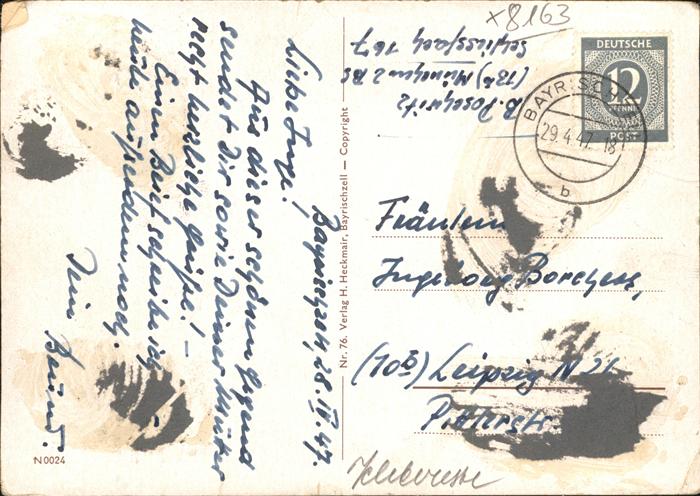 Bayrischzell, 28. IV. 47.
Liebe Inge!
Aus dieser schönen Gegend
sendet Dir sowie Deiner Mutter
recht herzliche Grüße! –
Einen Brief schreibe ich
heute außerdem noch.
Dein Bernd.
N 0024
Nr. 76. Verlag H. Heckmair, Bayrischzell — Copyright
x 8163
B. Posewitz
(13b) München 2 BS
Schliessfach 167
DEUTSCHE
12
PFENNIG
POST
BAYRISCHZELL
29.4.47. 18
b
Fräulein
Ingeborg Borchers,
(10b) Leipzig N 21